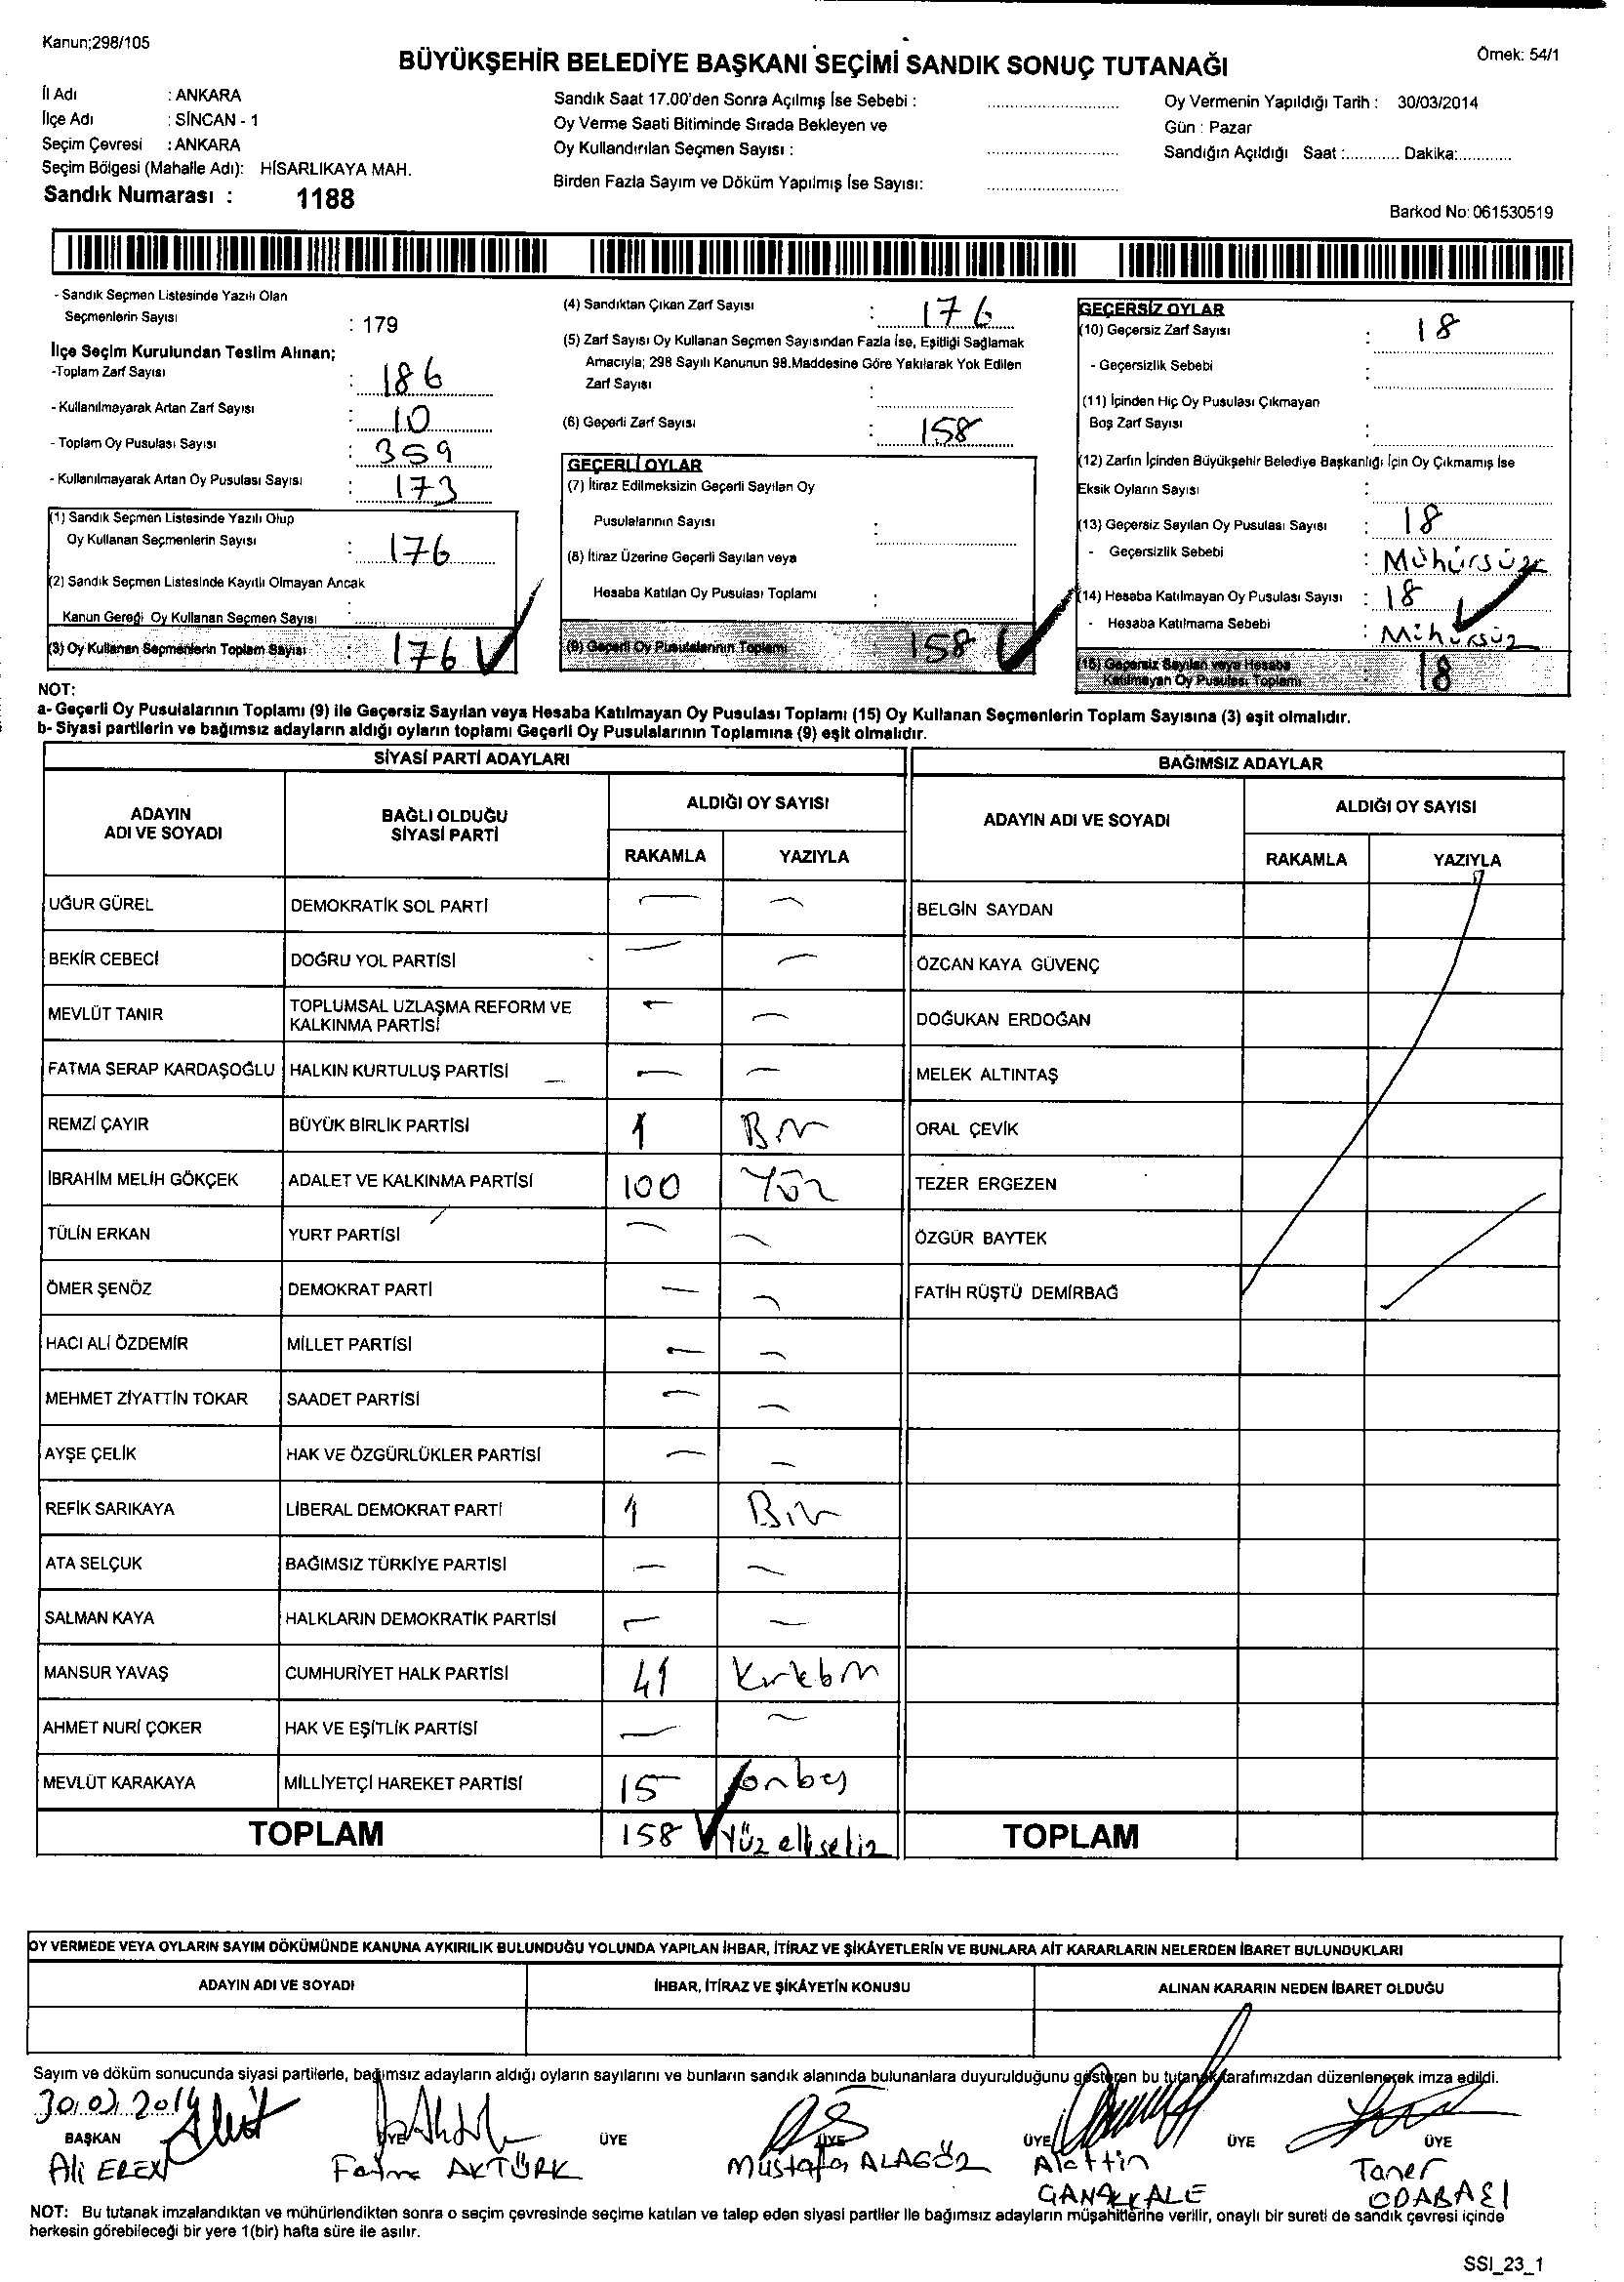 Kanun;298/105
Örnek: 54/1
BÜYÜKŞEHİR BELEDİYE BAŞKANI SEÇİMİ SANDIK SONUÇ TUTANAĞI
İl Adı : ANKARA
İlçe Adı : SİNCAN - 1
Seçim Çevresi : ANKARA
Seçim Bölgesi (Mahalle Adı): HİSARLIKAYA MAH.
Sandık Numarası : 1188
Sandık Saat 17.00'den Sonra Açılmış İse Sebebi :
Oy Verme Saati Bitiminde Sırada Bekleyen ve
Oy Kullandırılan Seçmen Sayısı :
Birden Fazla Sayım ve Döküm Yapılmış İse Sayısı:
Oy Vermenin Yapıldığı Tarih : 30/03/2014
Gün : Pazar
Sandığın Açıldığı Saat :............ Dakika:............
Barkod No: 061530519
- Sandık Seçmen Listesinde Yazılı Olan
Seçmenlerin Sayısı : 179
İlçe Seçim Kurulundan Teslim Alınan;
-Toplam Zarf Sayısı : 186
- Kullanılmayarak Artan Zarf Sayısı : 10
- Toplam Oy Pusulası Sayısı : 359
- Kullanılmayarak Artan Oy Pusulası Sayısı : 173
(1) Sandık Seçmen Listesinde Yazılı Olup
Oy Kullanan Seçmenlerin Sayısı : 176
(2) Sandık Seçmen Listesinde Kayıtlı Olmayan Ancak
Kanun Gereği Oy Kullanan Seçmen Sayısı :
(3) Oy Kullanan Seçmenlerin Toplam Sayısı : 176
(4) Sandıktan Çıkan Zarf Sayısı : 176
(5) Zarf Sayısı Oy Kullanan Seçmen Sayısından Fazla İse, Eşitliği Sağlamak
Amacıyla; 298 Sayılı Kanunun 98.Maddesine Göre Yakılarak Yok Edilen
Zarf Sayısı :
(6) Geçerli Zarf Sayısı : 158
GEÇERLİ OYLAR
(7) İtiraz Edilmeksizin Geçerli Sayılan Oy
Pusulalarının Sayısı :
(8) İtiraz Üzerine Geçerli Sayılan veya
Hesaba Katılan Oy Pusulası Toplamı :
(9) Geçerli Oy Pusulalarının Toplamı 158
GEÇERSİZ OYLAR
(10) Geçersiz Zarf Sayısı : 18
- Geçersizlik Sebebi :
(11) İçinden Hiç Oy Pusulası Çıkmayan
Boş Zarf Sayısı :
(12) Zarfın İçinden Büyükşehir Belediye Başkanlığı İçin Oy Çıkmamış İse
Eksik Oyların Sayısı :
(13) Geçersiz Sayılan Oy Pusulası Sayısı : 18
- Geçersizlik Sebebi : Mühürsüz
(14) Hesaba Katılmayan Oy Pusulası Sayısı : 18
- Hesaba Katılmama Sebebi : Mühürsüz
(15) Geçersiz Sayılan veya Hesaba
Katılmayan Oy Pusulası Toplamı : 18
NOT:
a- Geçerli Oy Pusulalarının Toplamı (9) ile Geçersiz Sayılan veya Hesaba Katılmayan Oy Pusulası Toplamı (15) Oy Kullanan Seçmenlerin Toplam Sayısına (3) eşit olmalıdır.
b- Siyasi partilerin ve bağımsız adayların aldığı oyların toplamı Geçerli Oy Pusulalarının Toplamına (9) eşit olmalıdır.
SİYASİ PARTİ ADAYLARI
ADAYIN ADI VE SOYADI
BAĞLI OLDUĞU SİYASİ PARTİ
ALDIĞI OY SAYISI
RAKAMLA YAZIYLA
UĞUR GÜREL DEMOKRATİK SOL PARTİ — —
BEKİR CEBECİ DOĞRU YOL PARTİSİ — —
MEVLÜT TANIR TOPLUMSAL UZLAŞMA REFORM VE
KALKINMA PARTİSİ — —
FATMA SERAP KARDAŞOĞLU HALKIN KURTULUŞ PARTİSİ — —
REMZİ ÇAYIR BÜYÜK BİRLİK PARTİSİ 1 Bir
İBRAHİM MELİH GÖKÇEK ADALET VE KALKINMA PARTİSİ 100 Yüz
TÜLİN ERKAN YURT PARTİSİ — —
ÖMER ŞENÖZ DEMOKRAT PARTİ — —
HACI ALİ ÖZDEMİR MİLLET PARTİSİ — —
MEHMET ZİYATTİN TOKAR SAADET PARTİSİ — —
AYŞE ÇELİK HAK VE ÖZGÜRLÜKLER PARTİSİ — —
REFİK SARIKAYA LİBERAL DEMOKRAT PARTİ 1 Bir
ATA SELÇUK BAĞIMSIZ TÜRKİYE PARTİSİ — —
SALMAN KAYA HALKLARIN DEMOKRATİK PARTİSİ — —
MANSUR YAVAŞ CUMHURİYET HALK PARTİSİ 41 Kırkbir
AHMET NURİ ÇOKER HAK VE EŞİTLİK PARTİSİ — —
MEVLÜT KARAKAYA MİLLİYETÇİ HAREKET PARTİSİ 15 onbeş
TOPLAM 158 Yüz elli sekiz
BAĞIMSIZ ADAYLAR
ADAYIN ADI VE SOYADI
ALDIĞI OY SAYISI
RAKAMLA YAZIYLA
BELGİN SAYDAN
ÖZCAN KAYA GÜVENÇ
DOĞUKAN ERDOĞAN
MELEK ALTINTAŞ
ORAL ÇEVİK
TEZER ERGEZEN
ÖZGÜR BAYTEK
FATİH RÜŞTÜ DEMİRBAĞ
TOPLAM
OY VERMEDE VEYA OYLARIN SAYIM DÖKÜMÜNDE KANUNA AYKIRILIK BULUNDUĞU YOLUNDA YAPILAN İHBAR, İTİRAZ VE ŞİKÂYETLERİN VE BUNLARA AİT KARARLARIN NELERDEN İBARET BULUNDUKLARI
ADAYIN ADI VE SOYADI İHBAR, İTİRAZ VE ŞİKÂYETİN KONUSU ALINAN KARARIN NEDEN İBARET OLDUĞU
Sayım ve döküm sonucunda siyasi partilerle, bağımsız adayların aldığı oyların sayılarını ve bunların sandık alanında bulunanlara duyurulduğunu gösteren bu tutanak tarafımızdan düzenlenerek imza edildi.
30.03.2014
BAŞKAN ÜYE ÜYE ÜYE ÜYE ÜYE ÜYE
Ali EREN Fatma AKTÜRK Mustafa ALAGÖZ Alattin Taner
ÇANAKKALE ODABAŞI
NOT: Bu tutanak imzalandıktan ve mühürlendikten sonra o seçim çevresinde seçime katılan ve talep eden siyasi partiler ile bağımsız adayların müşahitlerine verilir, onaylı bir sureti de sandık çevresi içinde
herkesin görebileceği bir yere 1(bir) hafta süre ile asılır.
SSI_23_1